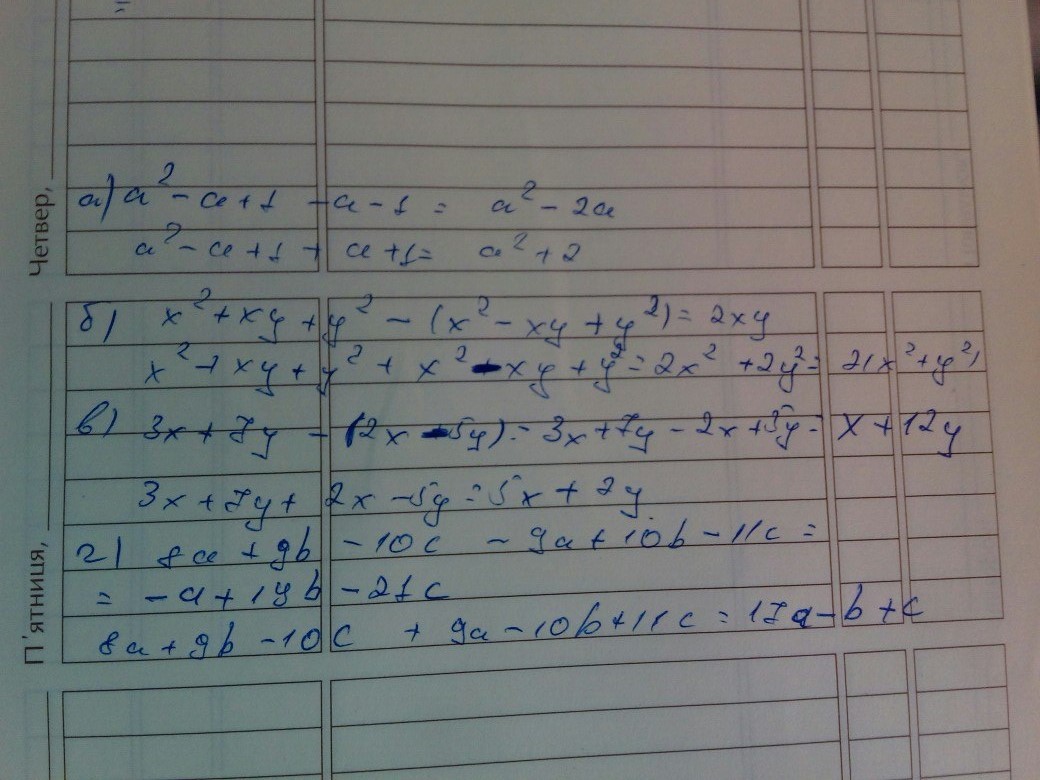 =
Четвер,
а) a² - a + 1 - a - 1 = a² - 2a
a² - a + 1 + a + 1 = a² + 2
П'ятниця,
б) x² + xy + y² - (x² - xy + y²) = 2xy
x² + xy + y² + x² - xy + y² = 2x² + 2y² = 2(x² + y²)
в) 3x + 7y - (2x - 5y) = 3x + 7y - 2x + 5y = x + 12y
3x + 7y + 2x - 5y = 5x + 2y
г) 8a + 9b - 10c - 9a + 10b - 11c =
= - a + 19b - 21c
8a + 9b - 10c + 9a - 10b + 11c = 17a - b + c